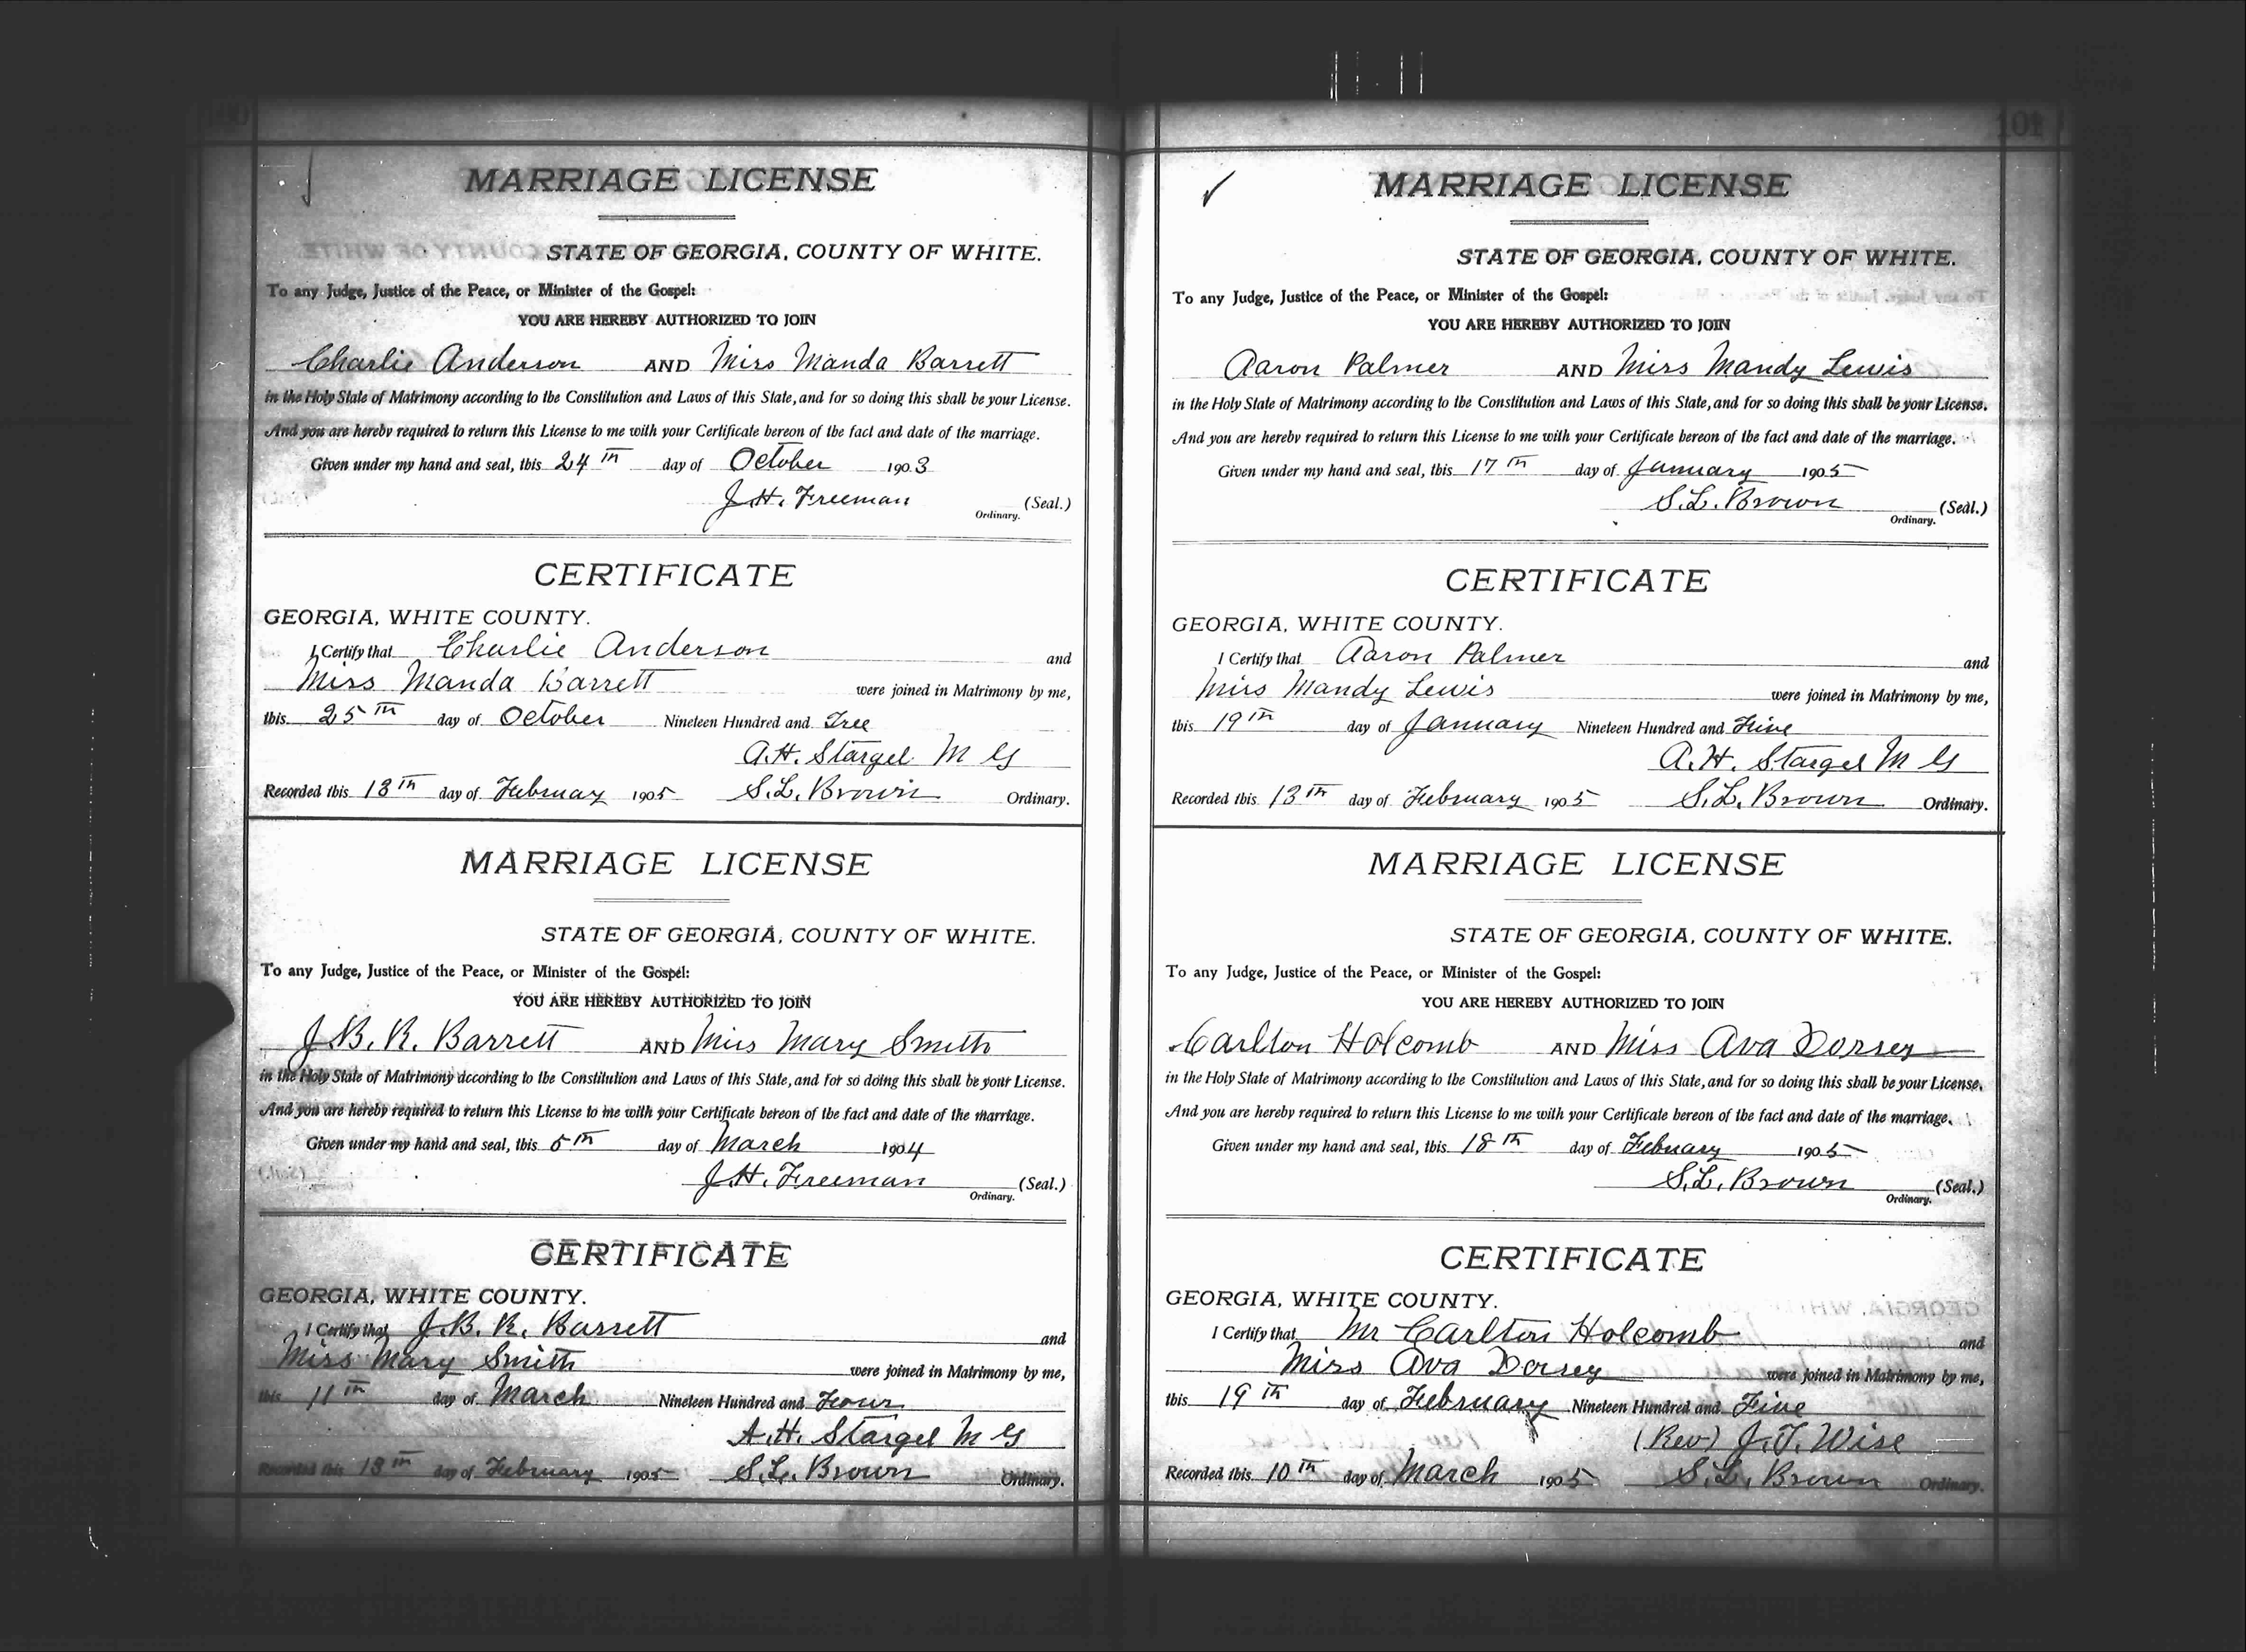 MARRIAGE LICENSE
STATE OF GEORGIA, COUNTY OF WHITE.
To any Judge, Justice of the Peace, or Minister of the Gospel:
YOU ARE HEREBY AUTHORIZED TO JOIN
Charlie Anderson AND Miss Manda Barrett
in the Holy State of Matrimony according to the Constitution and Laws of this State, and for so doing this shall be your License.
And you are hereby required to return this License to me with your Certificate hereon of the fact and date of the marriage.
Given under my hand and seal, this 24th day of October 1903
J.H. Freeman (Seal.)
Ordinary.
CERTIFICATE
GEORGIA, WHITE COUNTY.
I Certify that Charlie Anderson and
Miss Manda Barrett were joined in Matrimony by me,
this 25th day of October Nineteen Hundred and Tree
A.H. Stargel M G
Recorded this 13th day of February 1905 S.L. Brown Ordinary.
MARRIAGE LICENSE
STATE OF GEORGIA, COUNTY OF WHITE.
To any Judge, Justice of the Peace, or Minister of the Gospel:
YOU ARE HEREBY AUTHORIZED TO JOIN
J.B.R. Barrett AND Miss Mary Smith
in the Holy State of Matrimony according to the Constitution and Laws of this State, and for so doing this shall be your License.
And you are hereby required to return this License to me with your Certificate hereon of the fact and date of the marriage.
Given under my hand and seal, this 5th day of March 1904
J.H. Freeman (Seal.)
Ordinary.
CERTIFICATE
GEORGIA, WHITE COUNTY.
I Certify that J.B.R. Barrett and
Miss Mary Smith were joined in Matrimony by me,
this 11th day of March Nineteen Hundred and Four
A.H. Stargel M G
Recorded this 13th day of February 1905 S.L. Brown Ordinary.
101
MARRIAGE LICENSE
STATE OF GEORGIA, COUNTY OF WHITE.
To any Judge, Justice of the Peace, or Minister of the Gospel:
YOU ARE HEREBY AUTHORIZED TO JOIN
Aaron Palmer AND Miss Mandy Lewis
in the Holy State of Matrimony according to the Constitution and Laws of this State, and for so doing this shall be your License.
And you are hereby required to return this License to me with your Certificate hereon of the fact and date of the marriage.
Given under my hand and seal, this 17th day of January 1905
S.L. Brown (Seal.)
Ordinary.
CERTIFICATE
GEORGIA, WHITE COUNTY.
I Certify that Aaron Palmer and
Miss Mandy Lewis were joined in Matrimony by me,
this 19th day of January Nineteen Hundred and Five
A.H. Stargel M G
Recorded this 13th day of February 1905 S.L. Brown Ordinary.
MARRIAGE LICENSE
STATE OF GEORGIA, COUNTY OF WHITE.
To any Judge, Justice of the Peace, or Minister of the Gospel:
YOU ARE HEREBY AUTHORIZED TO JOIN
Carlton Holcomb AND Miss Ava Dorsey
in the Holy State of Matrimony according to the Constitution and Laws of this State, and for so doing this shall be your License.
And you are hereby required to return this License to me with your Certificate hereon of the fact and date of the marriage.
Given under my hand and seal, this 18th day of February 1905
S.L. Brown (Seal.)
Ordinary.
CERTIFICATE
GEORGIA, WHITE COUNTY.
I Certify that Mr Carlton Holcomb and
Miss Ava Dorsey were joined in Matrimony by me,
this 19th day of February Nineteen Hundred and Five
(Rev) J.T. Wise
Recorded this 10th day of March 1905 S.L. Brown Ordinary.